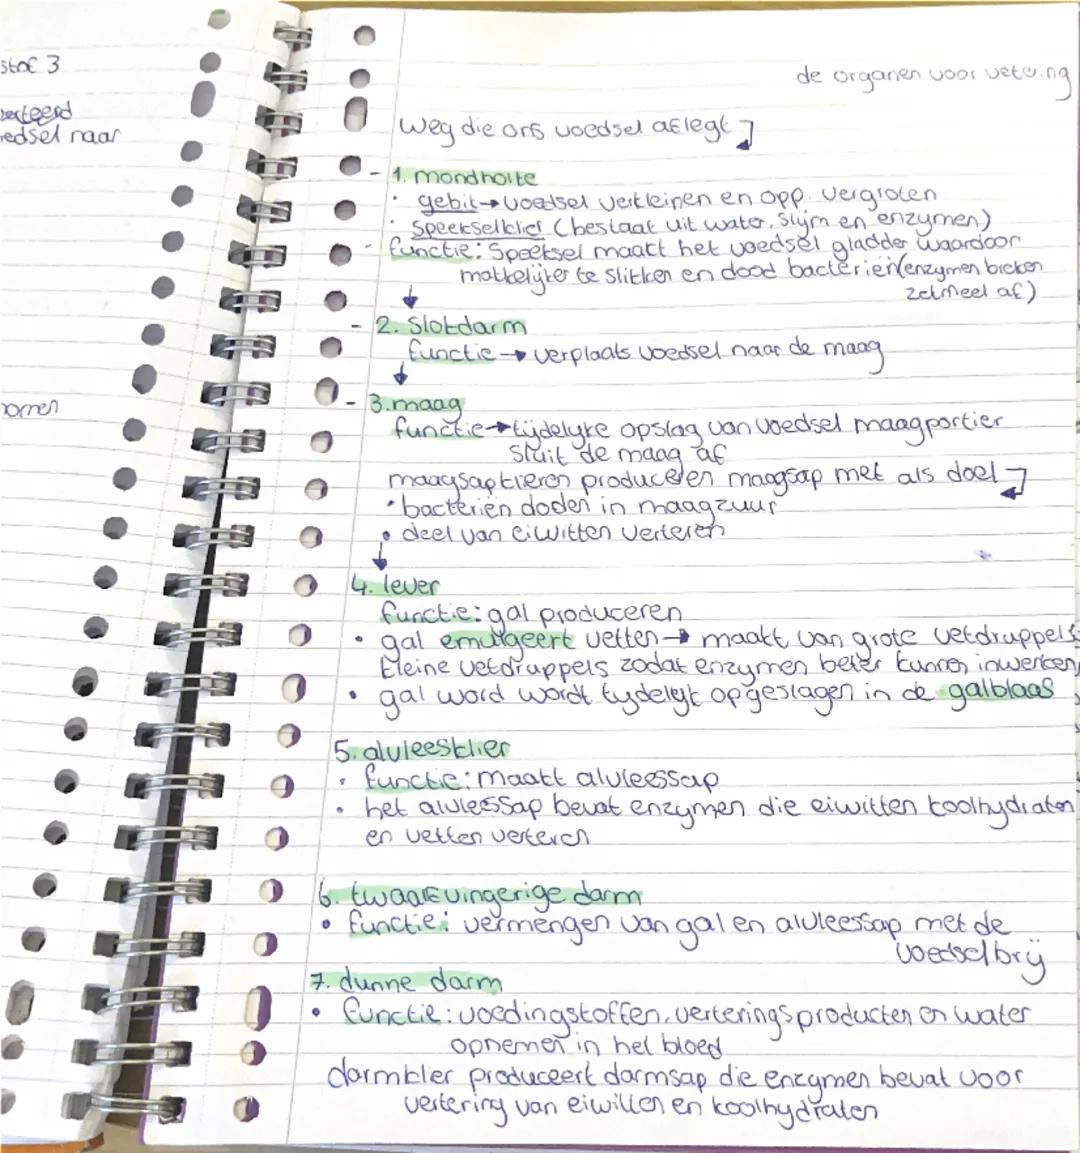 stof 3
verteerd
edsel naar
nomen
de organen voor vetering
Weg die ons voedsel aflegt
- 1. mondholte
· gebit → voedsel verkleinen en opp. vergroten
· Speekselklier (bestaat uit water, slijm en enzymen)
- functie: Speeksel maakt het voedsel gladder waardoor
makkelijker te slikken en dood bacteriën (enzymen breken
zetmeel af)
- 2. Slokdarm
functie → verplaats voedsel naar de maag
- 3. maag
functie → tijdelyke opslag van voedsel maagportier
sluit de maag af
maagsapklieren produceren maagsap met als doel
· bacteriën doden in maagzuur
· deel van eiwitten verteren
4. lever
functie: gal produceren
· gal emulgeert vetten → maakt van grote vetdruppels
kleine vetdruppels zodat enzymen beter kunnen inwerken
· gal word wordt tydelyk opgeslagen in de galblaas
5. alvleesklier
· functie: maakt alvleessap
· het alvleessap bevat enzymen die eiwitten koolhydraten
en vetten verteren
6. twaalfvingerige darm
· functie: vermengen van gal en alvleessap met de
voedselbrij
7. dunne darm
· functie: voedingstoffen, verteringsproducten en water
opnemen in het bloed
darmklier produceert darmsap die enzymen bevat voor
vertering van eiwitten en koolhydraten